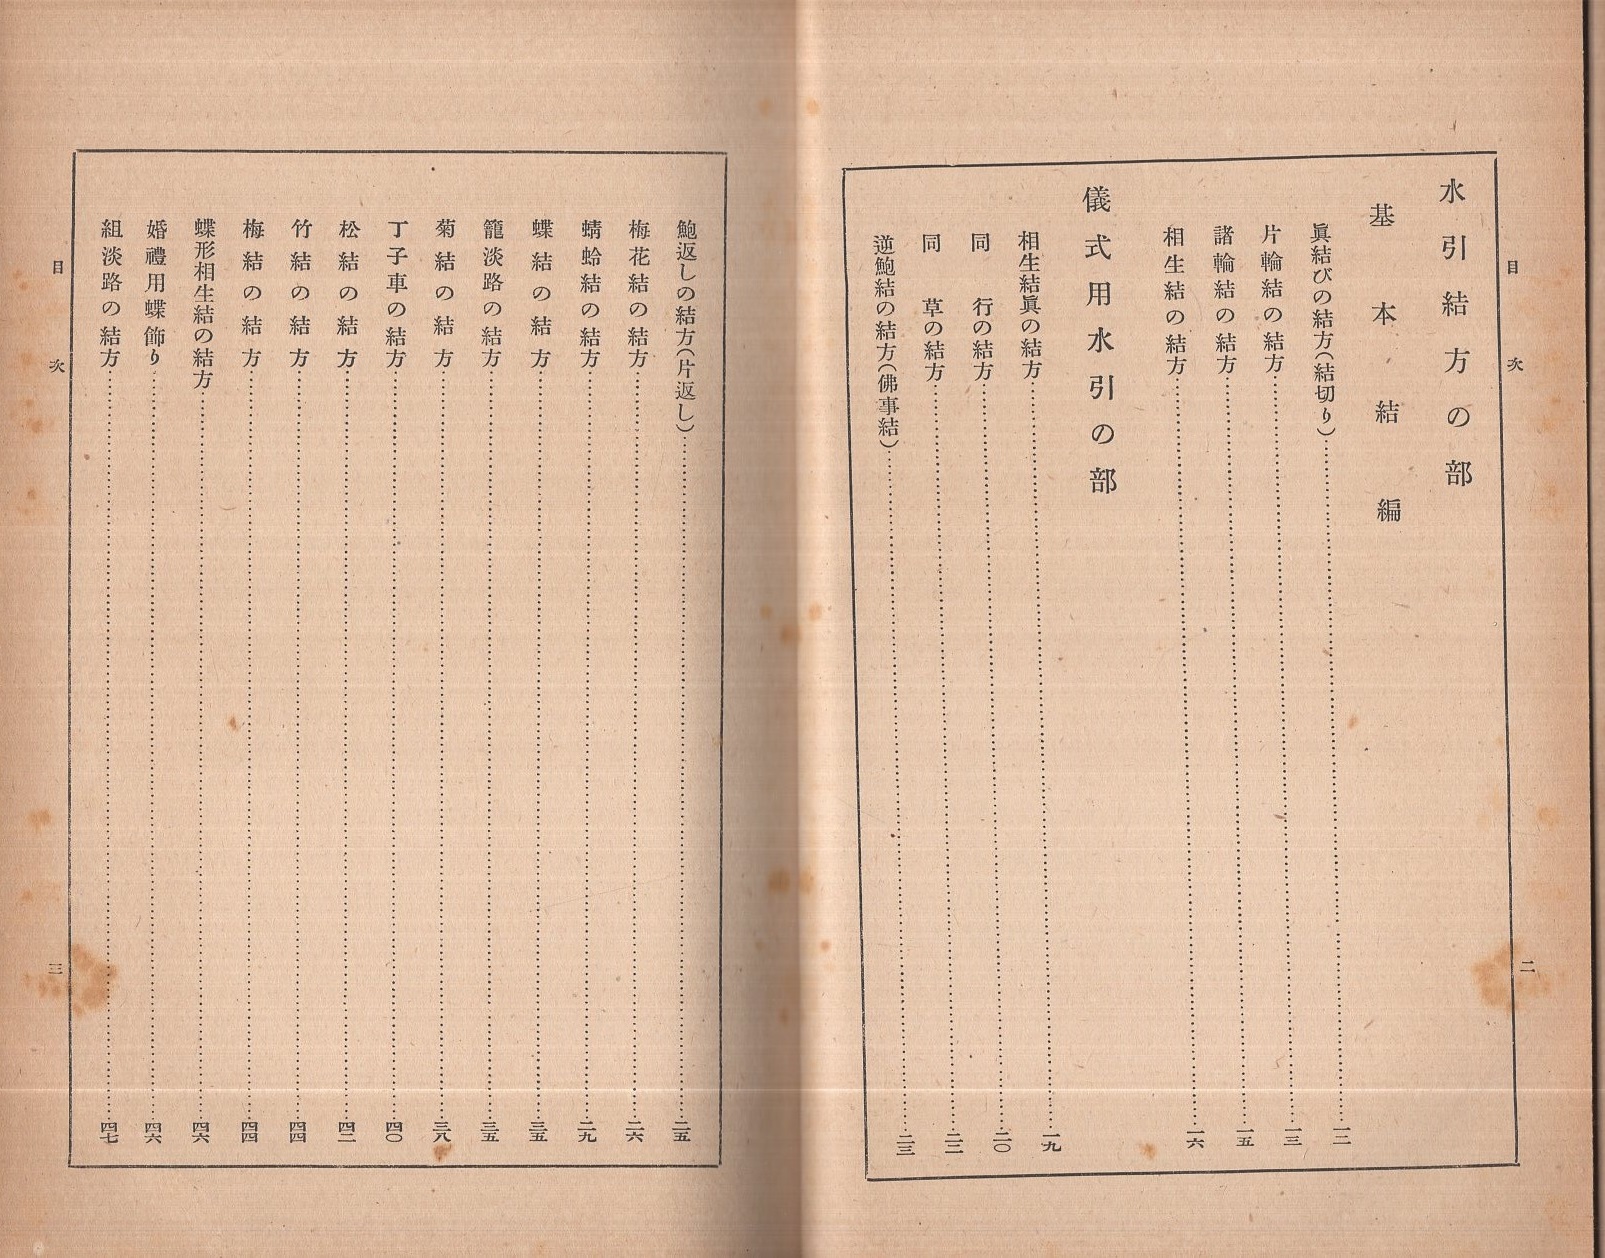 目次
二
水引結方の部
基本結編
眞結びの結方(結切り)…………一二
片輪結の結方…………一三
諸輪結の結方…………一五
相生結の結方…………一六
儀式用水引の部
相生結眞の結方…………一九
同 行の結方…………二〇
同 草の結方…………二二
逆鮑結の結方(佛事結)…………二三
鮑返しの結方(片返し)…………二五
梅花結の結方…………二六
蜻蛉結の結方…………二九
蝶結の結方…………三五
籠淡路の結方…………三五
菊結の結方…………三八
丁子車の結方…………四〇
松結の結方…………四二
竹結の結方…………四四
梅結の結方…………四四
蝶形相生結の結方…………四六
婚禮用蝶飾り…………四六
組淡路の結方…………四七
目次
三